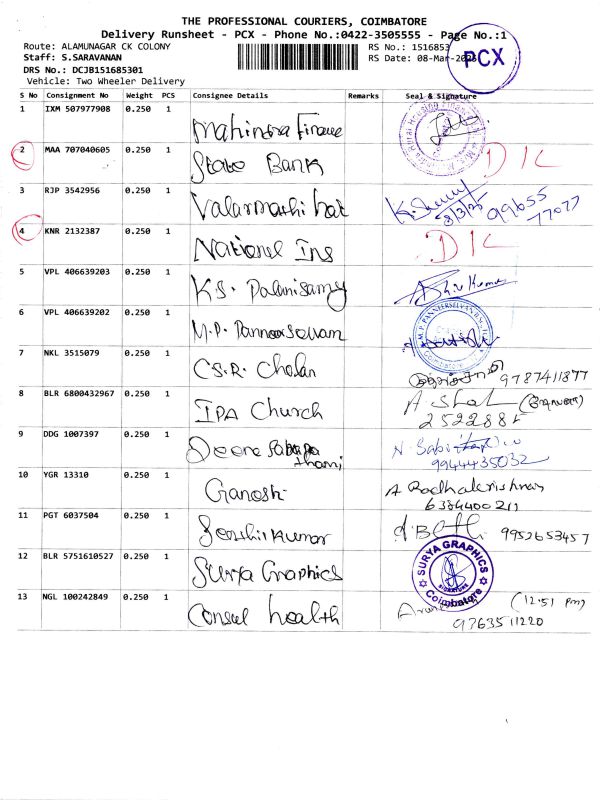 THE PROFESSIONAL COURIERS, COIMBATORE
Delivery Runsheet - PCX - Phone No.:0422-3505555 - Page No.:1
Route: ALAMUNAGAR CK COLONY
RS No.: 1516853
PCX
Staff: S.SARAVANAN
RS Date: 08-Mar-2025
DRS No.: DCJB151685301
Vehicle: Two Wheeler Delivery
S No Consignment No Weight PCS Consignee Details Remarks Seal & Signature
1 IXM 507977908 0.250 1 Mahindra Finance
2 MAA 707040605 0.250 1 State Bank DIL
3 RJP 3542956 0.250 1 Valarmathi hat 8/3/25 99655 77077
4 KNR 2132387 0.250 1 National Ins DIL
5 VPL 406639203 0.250 1 K.S. Palanisamy
6 VPL 406639202 0.250 1 M.P. Panneerselvam
Coimbatore
7 NKL 3515079 0.250 1 C.S.R. Cholan 9787411877
8 BLR 6800432967 0.250 1 IPA Church
9 DDG 1007397 0.250 1 9944435032
10 YGR 13310 0.250 1 Ganosh A Radhakrishnan
6384400211
11 PGT 6037504 0.250 1 9952653457
12 BLR 5751610527 0.250 1 Surya Graphics SURYA GRAPHICS SIGNATURE Coimbatore
13 NGL 100242849 0.250 1 Consul health (12.51 pm)
9763511220